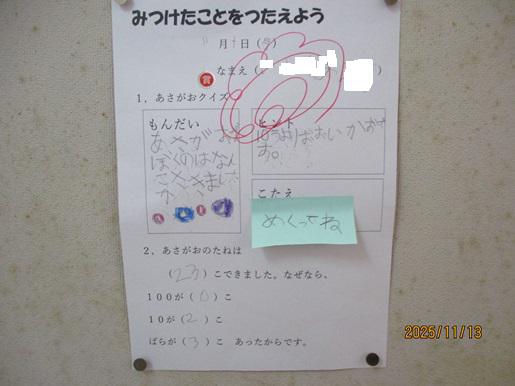 みつけたことをつたえよう
月 日（
賞 なまえ（ ）
1，あさがおクイズ
もんだい
あさがお
ぼくのはなん
こさきました
か。
ヒント
かおす
す。
こたえ
めくってね
2，あさがおのたねは
（23）こできました。なぜなら、
100が（0）こ
10が（2）こ
ばらが（3）こ あったからです。
2025/11/13